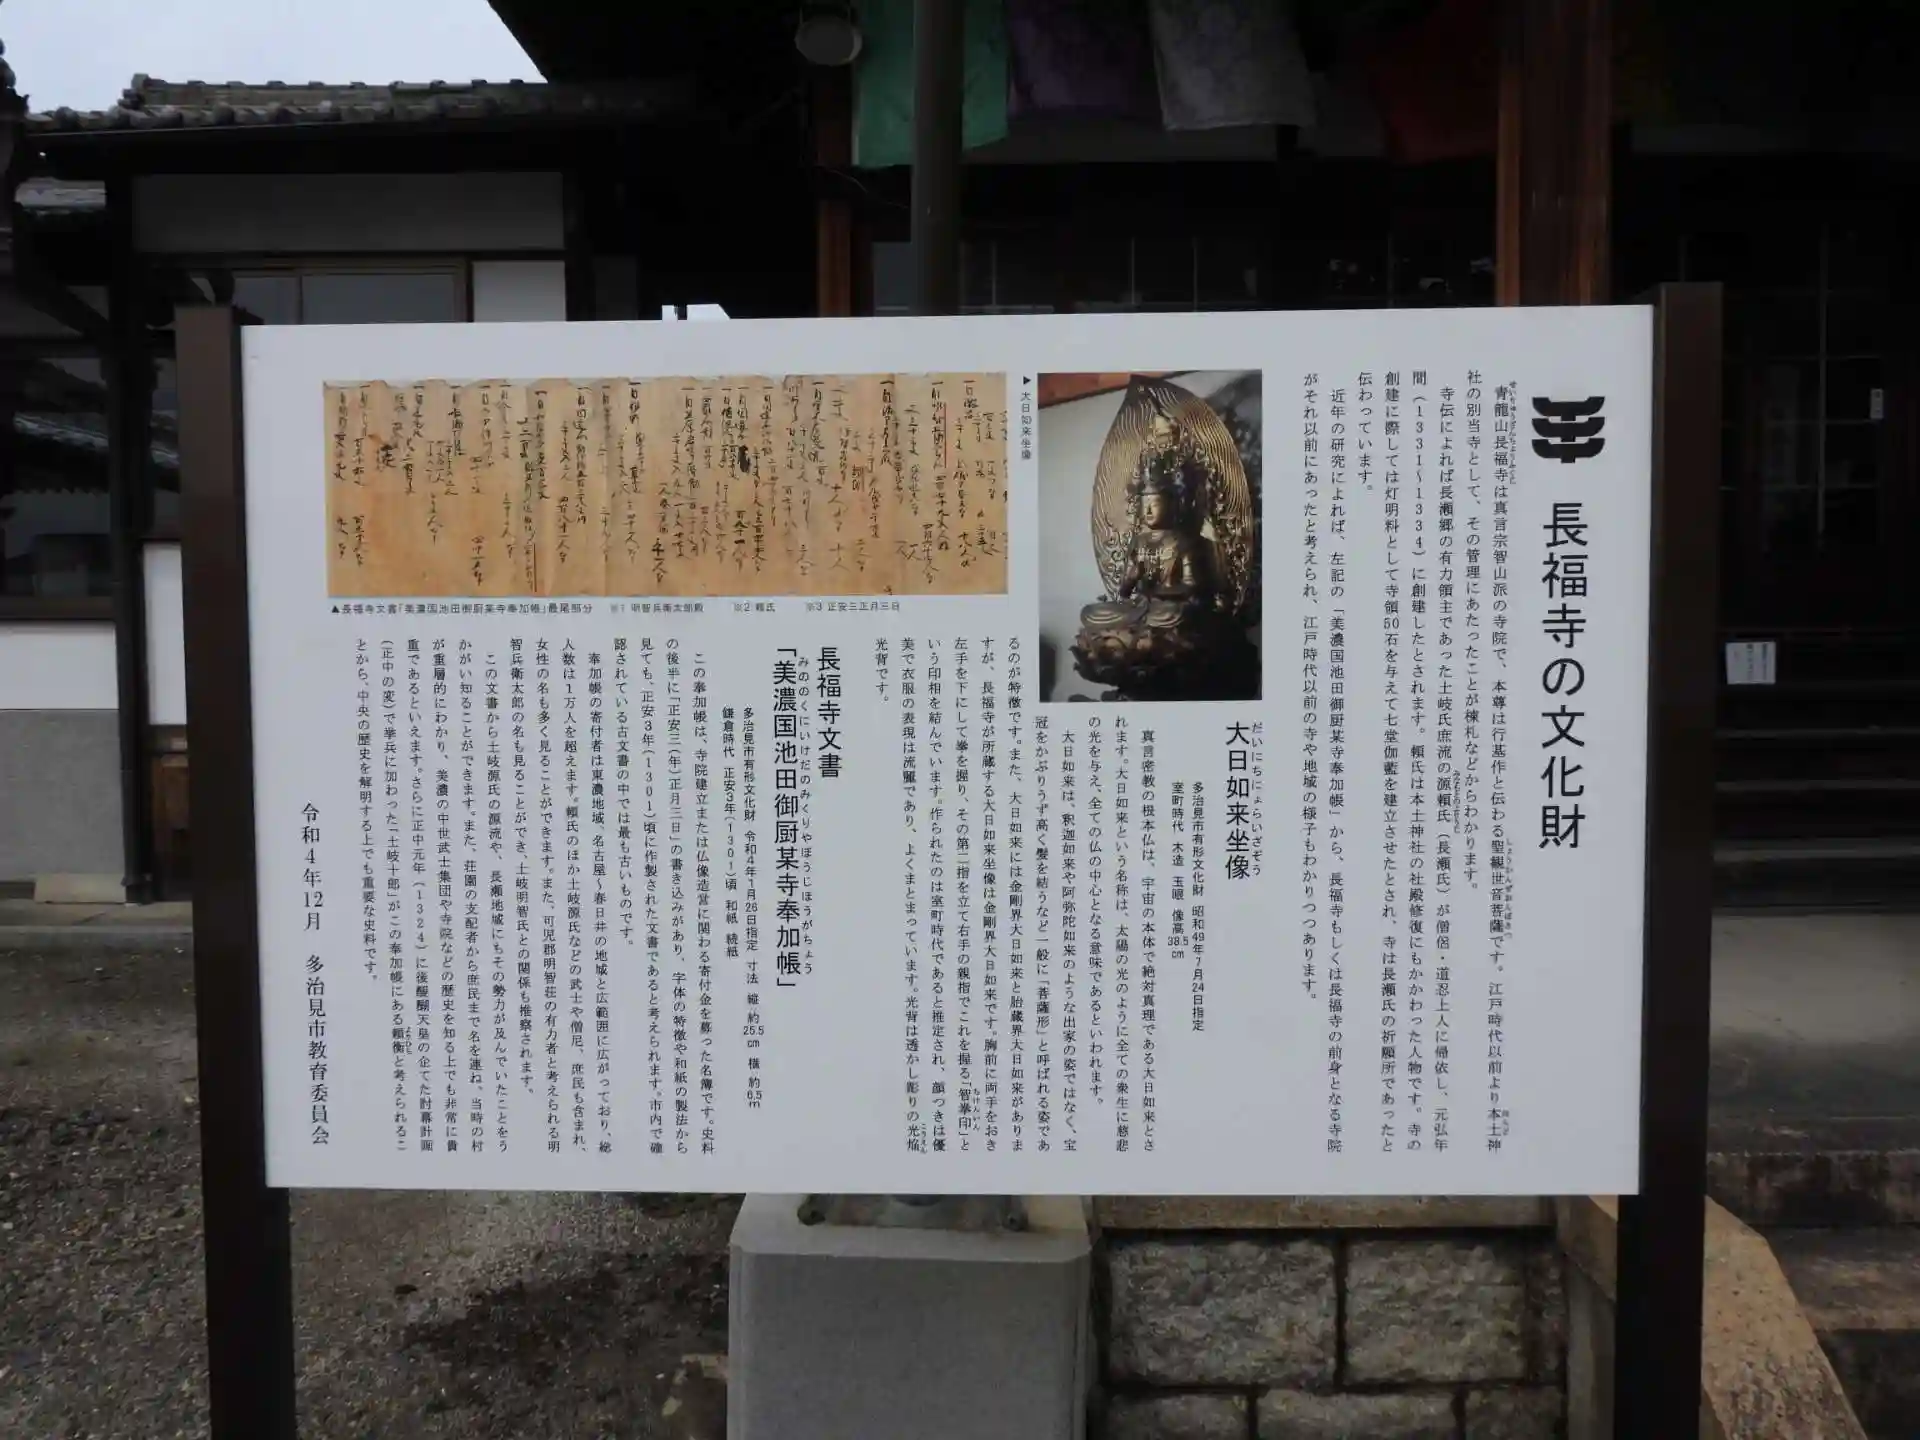 長福寺の文化財
青龍山長福寺は真言宗智山派の寺院で、本尊は行基作と伝わる聖観世音菩薩です。江戸時代以前より本土神
せいりゅうざんちょうふくじ
しょうかんぜおんぼさつ
ほんど
社の別当寺として、その管理にあたったことが棟札などからわかります。
寺伝によれば長瀬郷の有力領主であった土岐氏庶流の源頼氏(長瀬氏)が僧侶・道忍上人に帰依し、元弘年
みなもとのよりうじ
間(1331~1334)に創建したとされます。頼氏は本土神社の社殿修復にもかかわった人物です。寺の
創建に際しては灯明料として寺領50石を与えて七堂伽藍を建立させたとされ、寺は長瀬氏の祈願所であったと
伝わっています。
近年の研究によれば、左記の「美濃国池田御厨某寺奉加帳」から、長福寺もしくは長福寺の前身となる寺院
がそれ以前にあったと考えられ、江戸時代以前の寺や地域の様子もわかりつつあります。
▶大日如来坐像
大日如来坐像
だいにちにょらいざぞう
多治見市有形文化財 昭和49年7月24日指定
室町時代 木造 玉眼 像高38.5cm
真言密教の根本仏は、宇宙の本体で絶対真理である大日如来とさ
れます。大日如来という名称は、太陽の光のように全ての衆生に慈悲
の光を与え、全ての仏の中心となる意味であるといわれます。
大日如来は、釈迦如来や阿弥陀如来のような出家の姿ではなく、宝
冠をかぶりうず高く髪を結うなど一般に「菩薩形」と呼ばれる姿であ
るのが特徴です。また、大日如来には金剛界大日如来と胎蔵界大日如来がありま
すが、長福寺が所蔵する大日如来坐像は金剛界大日如来です。胸前に両手をおき
左手を下にして拳を握り、その第二指を立て右手の親指でこれを握る「智拳印」と
ちけんいん
いう印相を結んでいます。作られたのは室町時代であると推定され、顔つきは優
美で衣服の表現は流麗であり、よくまとまっています。光背は透かし彫りの光焔
こうえん
光背です。
▲長福寺文書「美濃国池田御厨某寺奉加帳」最尾部分 ※1 明智兵衛太郎殿 ※2 頼氏 ※3 正安三正月三日
長福寺文書
「美濃国池田御厨某寺奉加帳」
みののくにいけだのみくりやぼうじほうがちょう
多治見市有形文化財 令和4年1月26日指定 寸法 縦 約25.5cm 横 約6.5m
鎌倉時代 正安3年(1301)頃 和紙 続紙
この奉加帳は、寺院建立または仏像造営に関わる寄付金を募った名簿です。史料
の後半に「正安三(年)正月三日」の書き込みがあり、字体の特徴や和紙の製法から
見ても、正安3年(1301)頃に作製された文書であると考えられます。市内で確
認されている古文書の中では最も古いものです。
奉加帳の寄付者は東濃地域、名古屋~春日井の地域と広範囲に広がっており、総
人数は1万人を超えます。頼氏のほか土岐源氏などの武士や僧尼、庶民も含まれ、
女性の名も多く見ることができます。また、可児郡明智荘の有力者と考えられる明
智兵衛太郎の名も見ることができ、土岐明智氏との関係も推察されます。
この文書から土岐源氏の源流や、長瀬地域にもその勢力が及んでいたことをう
かがい知ることができます。また、荘園の支配者から庶民まで名を連ね、当時の村
が重層的にわかり、美濃の中世武士集団や寺院などの歴史を知る上でも非常に貴
重であるといえます。さらに正中元年(1324)に後醍醐天皇の企てた討幕計画
(正中の変)で挙兵に加わった「土岐十郎」がこの奉加帳にある頼衡と考えられるこ
よりひら
とから、中央の歴史を解明する上でも重要な史料です。
令和4年12月 多治見市教育委員会